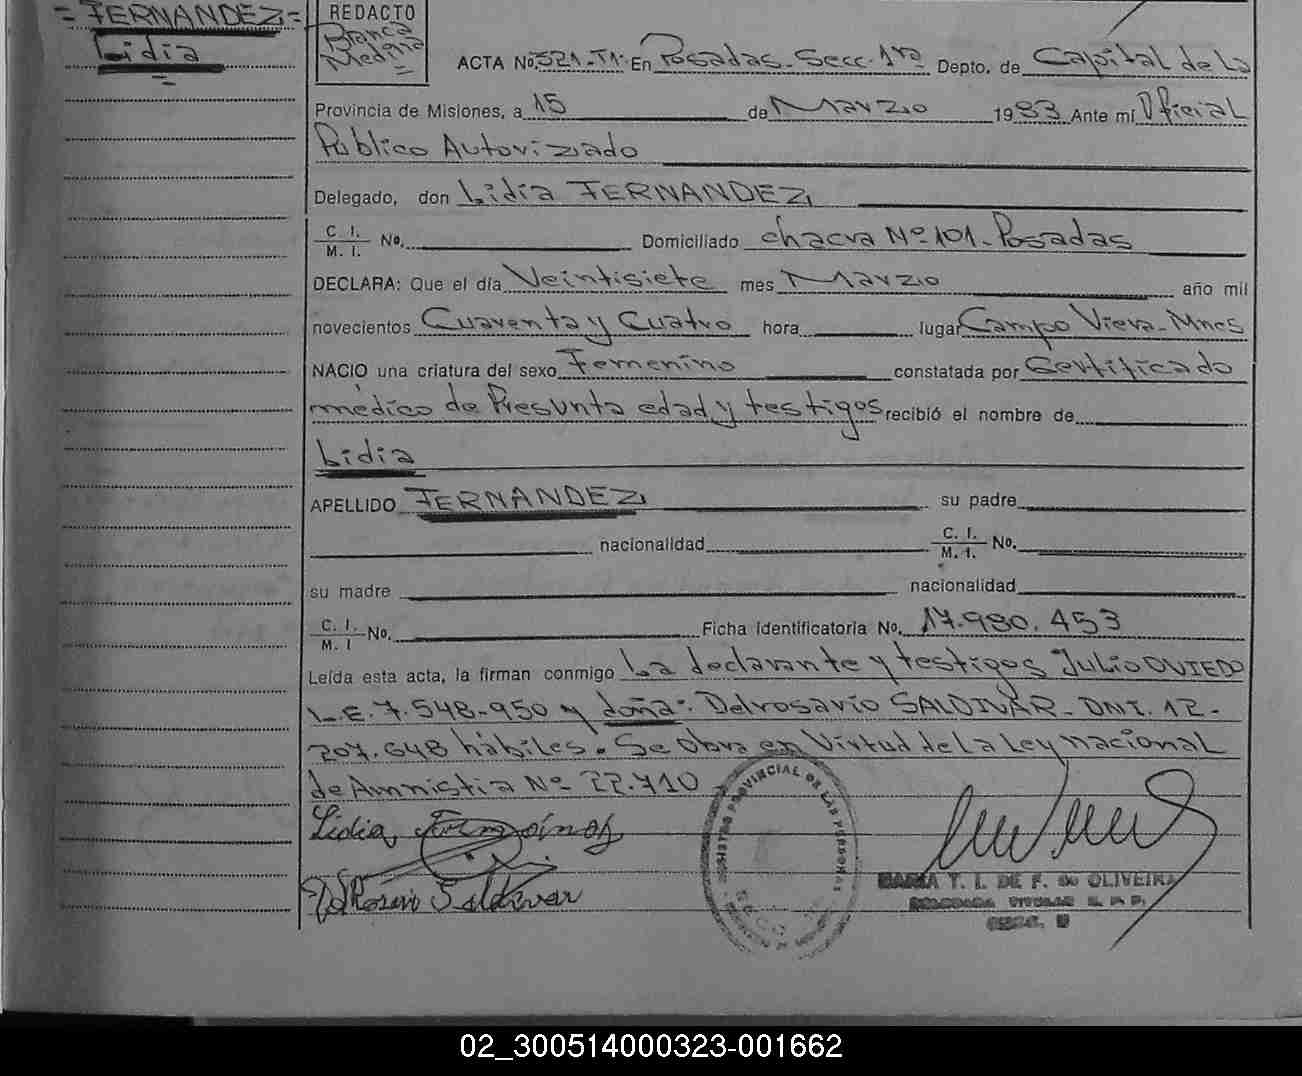 = FERNANDEZ =
Lidia
=
REDACTO
Blanca
Medina
=
ACTA No. 321-T1- En Posadas - Secc. 1ra Depto. de Capital de la
Provincia de Misiones, a 15 de Marzo 1983 Ante mí Oficial
Público Autorizado
Delegado, don Lidia FERNANDEZ
C. I.
M. I. No. Domiciliado chacra Nº 101 - Posadas
DECLARA: Que el día Veintisiete mes Marzo año mil
novecientos Cuarenta y Cuatro hora lugar Campo Viera - Mnes
NACIO una criatura del sexo Femenino constatada por Certificado
médico de Presunta edad y testigos recibió el nombre de
Lidia
APELLIDO FERNANDEZ su padre
nacionalidad C. I.
M. I. No.
su madre nacionalidad
C. I.
M. I No. Ficha Identificatoria No. 17.980.453
Leída esta acta, la firman conmigo La declarante y testigos Julio OVIEDO
L.E. 7.548-950 y doña: Delrosario SALDIVAR - DNI. 12-
207.648 hábiles. Se Obra en Virtud de La Ley Nacional
de Amnistia Nº 22.710
Lidia
Saldivar
REGISTRO PROVINCIAL DE LAS PERSONAS
MARIA T. I. DE F. de OLIVEIRA
DELEGADA TITULAR R. P. P.